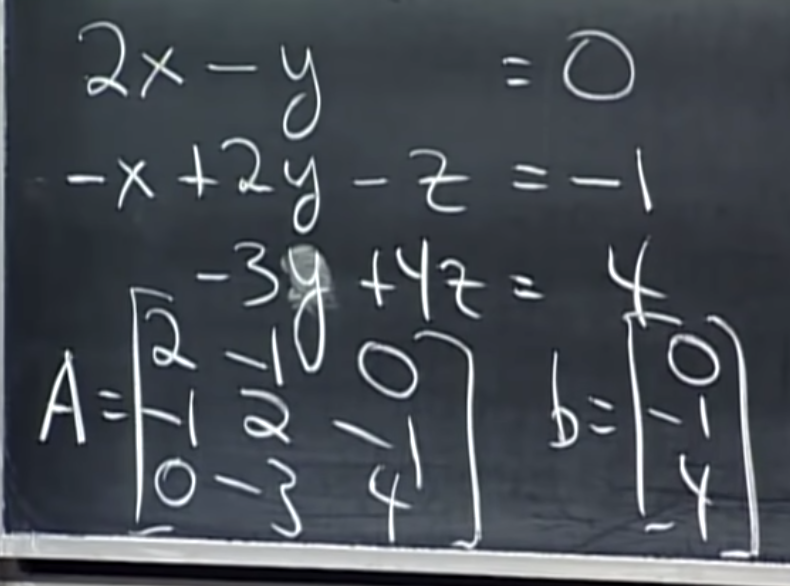 2x - y = 0
-x + 2y - z = -1
-3y + 4z = 4
A = [ 2 -1 0
-1 2 -1
0 -3 4 ]
b = [ 0
-1
4 ]